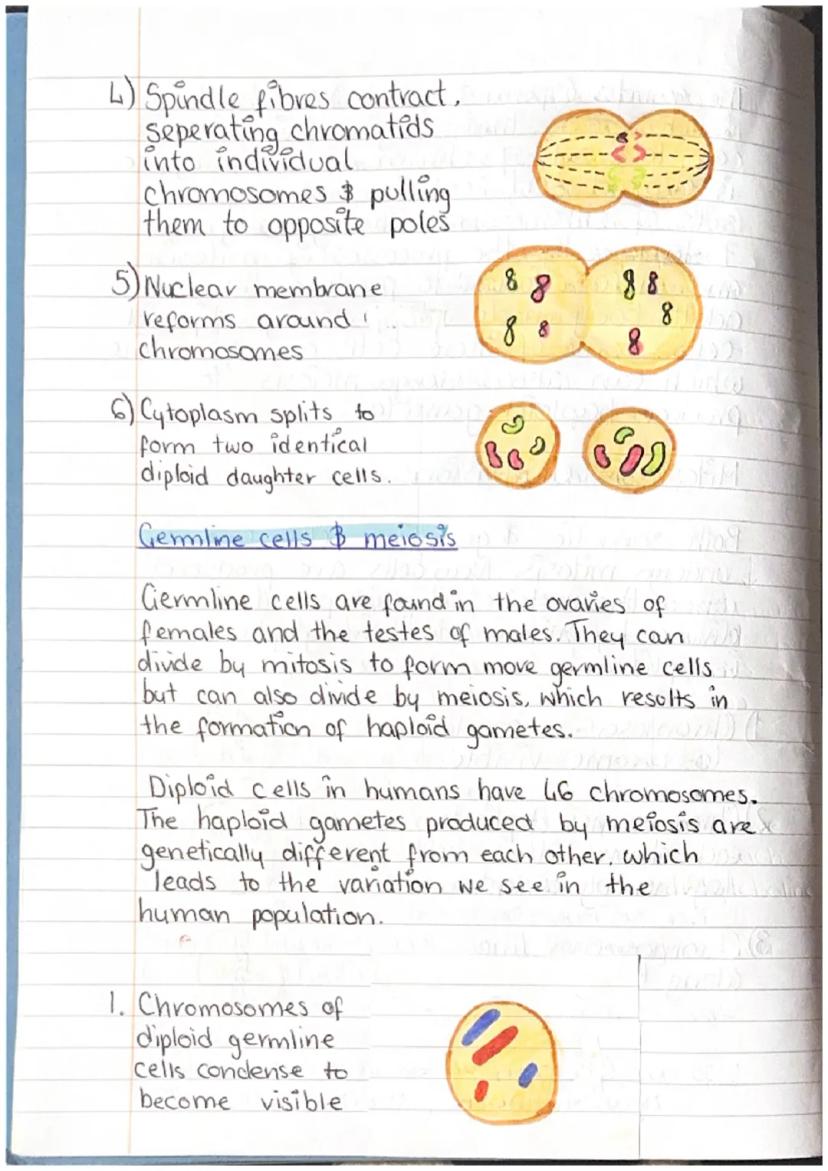 4) Spindle fibres contract,
seperating chromatids
into individual
chromosomes & pulling
them to opposite poles
5) Nuclear membrane
reforms around
chromosomes
6) Cytoplasm splits to
form two identical
diploid daughter cells.
Germline cells & meiosis
Germline cells are found in the ovaries of
females and the testes of males. They can
divide by mitosis to form more germline cells
but can also divide by meiosis, which results in
the formation of haploid gametes.
Diploid cells in humans have 46 chromosomes.
The haploid gametes produced by meiosis are
genetically different from each other, which
leads to the variation we see in the
human population.
1. Chromosomes of
diploid germline
cells condense to
become visible